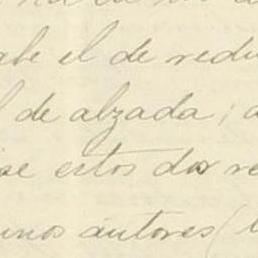 abe el de redu
l de alzada; a
se estos dos re
unos autores (